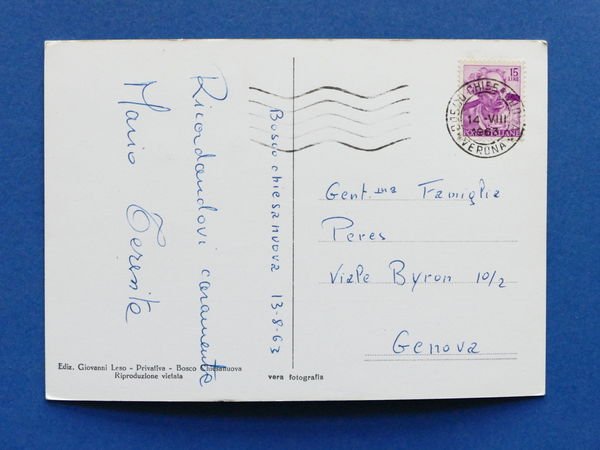 Bosco chiesanuova 13-8-63
Ricordandovi caramente
Mario Teresita
15
LIRE
BOSCO CHIESANUOVA
14 -VIII
1963
VERONA
Gent.ma Famiglia
Peres
Viale Byron 10/2
Genova
Ediz. Giovanni Leso - Privativa - Bosco Chiesanuova
Riproduzione vietata
vera fotografia